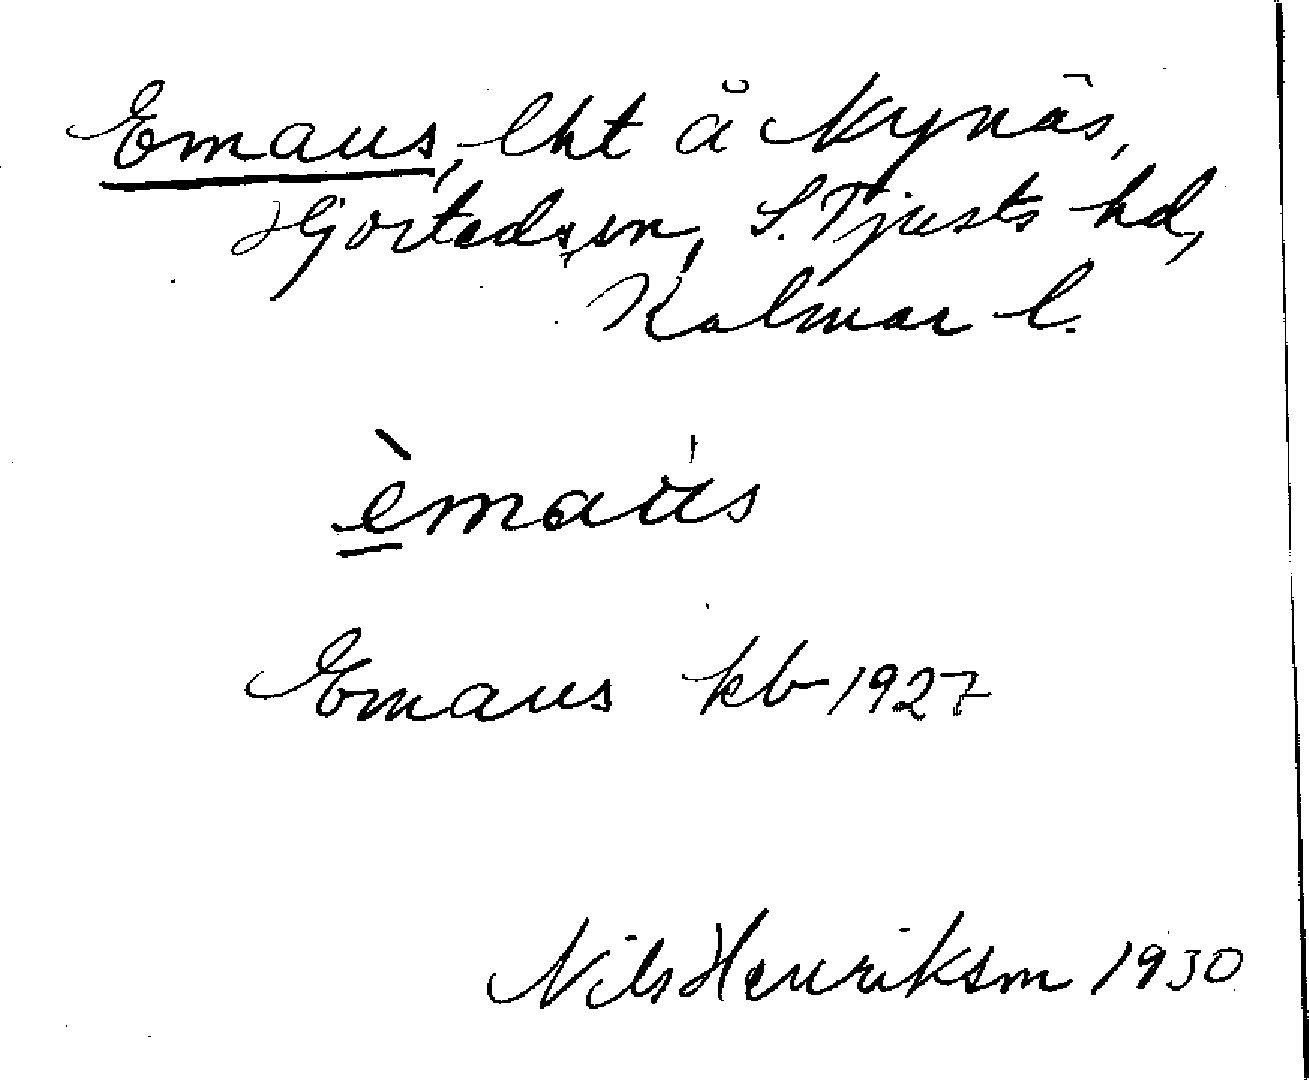 Emaus, lht å Nynäs,
Hjorteds sn, S. Tjusts hd,
Kalmar l.
èmaùs
Emaus kb 1927
Nils Henrikson 1930